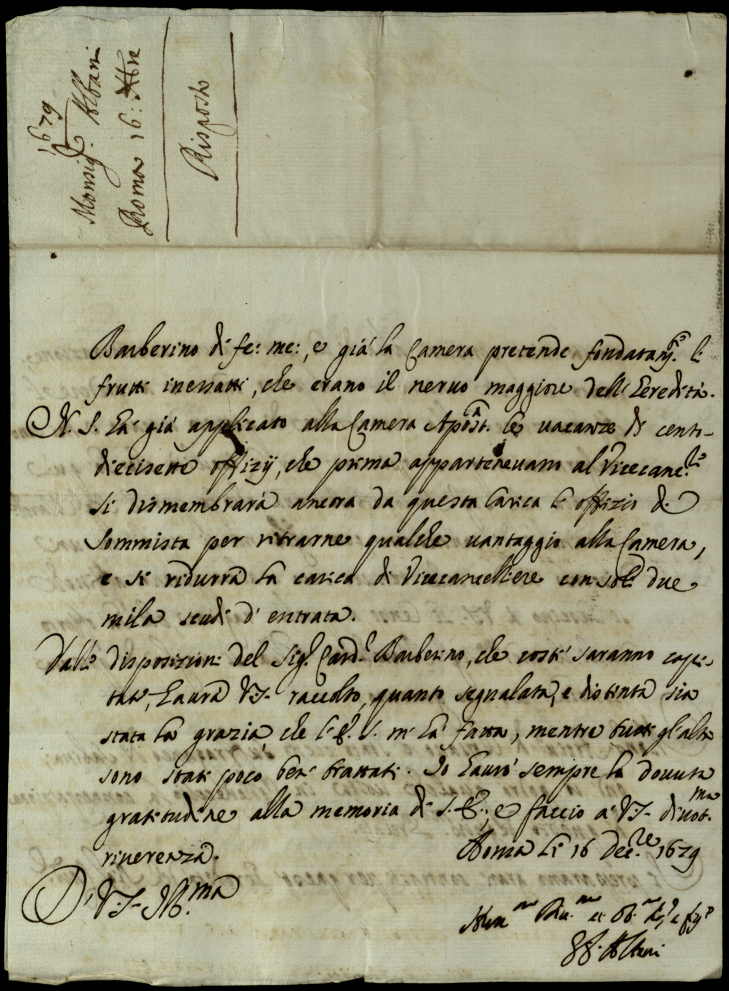 1679
Monsig.r Albani
Roma 16: Xbre
Risposto
Barberino di fe: me:, e già la Camera pretende fondatam.te li
frutti inesatti, che erano il neruo maggiore dell'Eredità.
N. S. hà già applicato alla Camera Apost.ca le uacanze di cento
diecisette offizij, che prima apparteneuano al Vicecanc.re
si dismembrarà ancora da questa carica l'offizio di
Sommista per ritrarne qualche uantaggio alla Camera,
e si ridurrà la carica di Vicecancelliere con soli due
mila scudi d'entrata.
Dalle disposizioni del Sig.r Card.l Barberino, che costì saranno capi-
tate, haurà VS. raccolto, quanto segnalata, e distinta sia
stata la grazia, che l'E. S. m'hà fatta, mentre tutti gl'altri
sono stati poco ben trattati. Io haurò sempre la douuta
gratitudine alla memoria di S. E., e faccio à VS. diuot.ma
riuerenza.
Roma li 16 Dec.re 1679
D. VS. Ill.ma
Albani